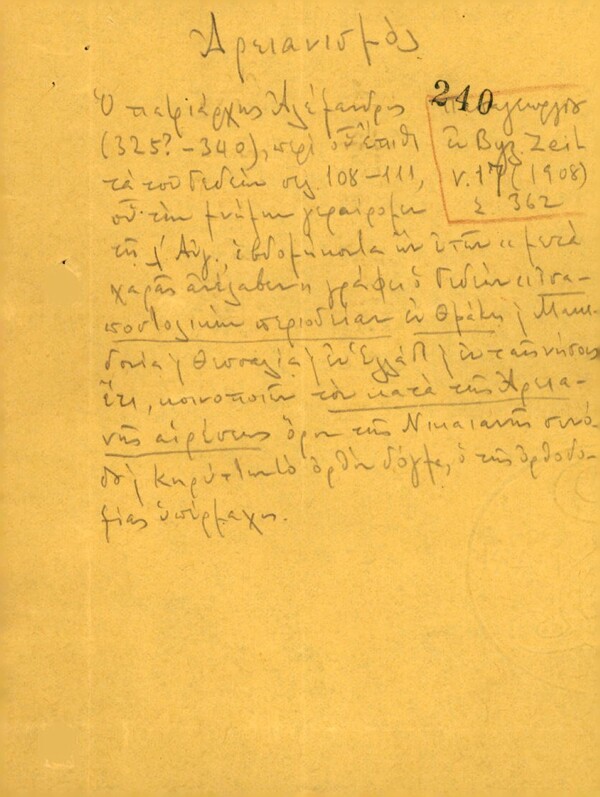 Ἀρειανισμός
240
Παπαγεωργίου
ἐν Byz. Zeit
v. 17 (1908)
σ. 362
Ὁ πατριάρχης Ἀλέξανδρος
(325?-340), περὶ οὗ
τὰ τοῦ Γεδεὼν σελ. 108-111,
οὗ τὴν μνήμην γεραίρομεν
τῇ Αὐγ. ἑβδομηκοντα ἐτῶν "μετὰ
χαρᾶς ἀνέλαβεν" γράφει ὁ Γεδεὼν "ἰσα-
ποστολικὴν περιοδείαν ἐν Θρᾴκῃ, Μακε-
δονίᾳ, Θεσσαλίᾳ, ἐν Ἑλλάδι, ἐν ταῖς νήσοις
ἔτι, κοινοποιῶν τὸν κατὰ τῆς Ἀρεια-
νῆς αἱρέσεως ὅρον τῆς Νικαιανῆς συνό-
δου, κηρύττων τὸ ὀρθὸν δόγμα, ὁ τῆς ὀρθοδο-
ξίας ὑπέρμαχος.